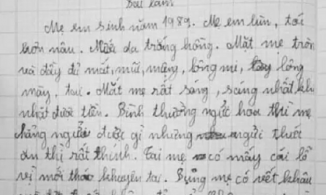 Bài làm
Mẹ em sinh năm 1989. Mẹ em lùn, tói
hơn nâu. Mũi da trắng hồng. Mặt mẹ tròn
và đầy đủ mắt, mũi, mày, lông mi, lông
mày, tai. Mắt mẹ rất sáng, sáng nhất khi
nhặt được tiền. Bình thường ngửi hoa thì mẹ
chẳng ngửi được gì nhưng ngửi thức
ăn thì rất thính. Tai mẹ có mấy cái lỗ
vì mới khuyên ta. Bụng mẹ có vết khâu